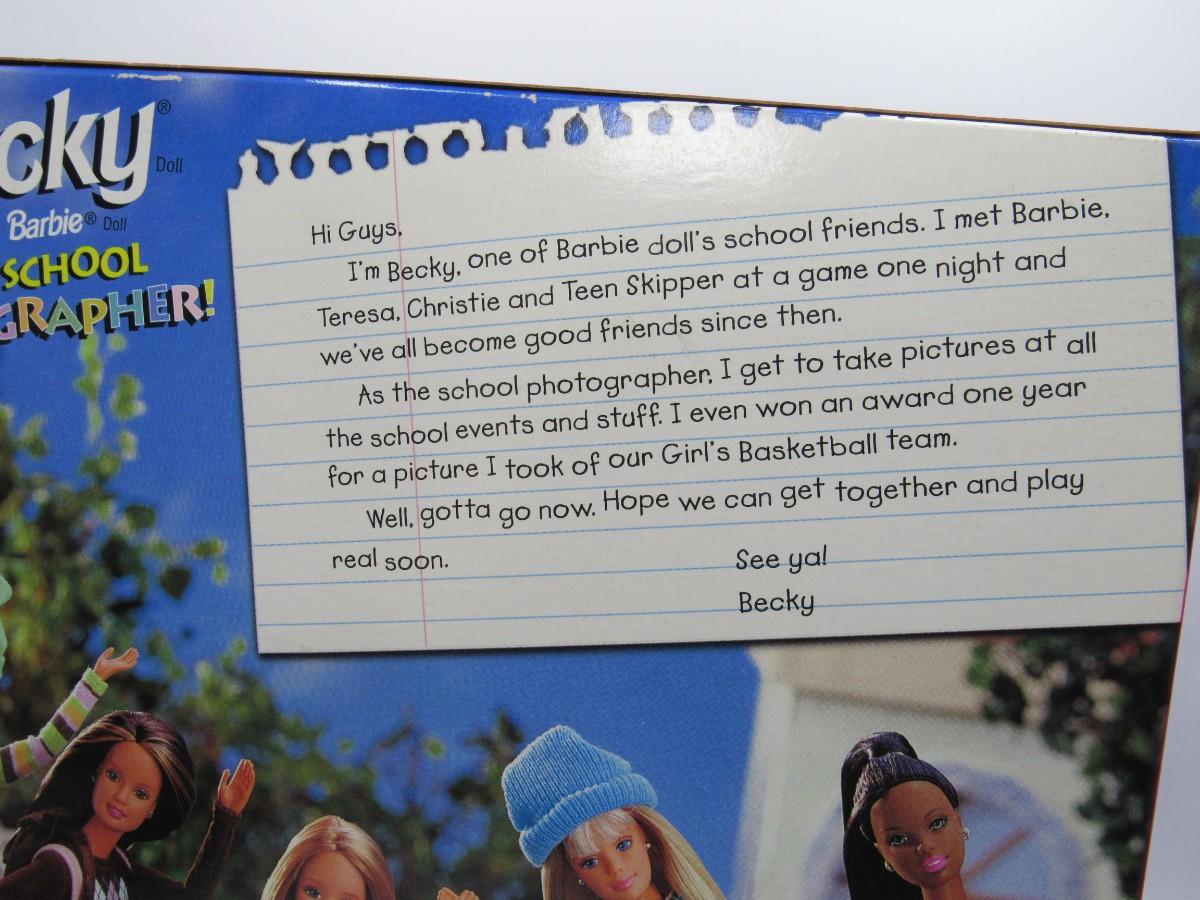 cky® Doll
Barbie® Doll
SCHOOL
GRAPHER!
Hi Guys,
I'm Becky, one of Barbie doll's school friends. I met Barbie,
Teresa, Christie and Teen Skipper at a game one night and
we've all become good friends since then.
As the school photographer, I get to take pictures at all
the school events and stuff. I even won an award one year
for a picture I took of our Girl's Basketball team.
Well, gotta go now. Hope we can get together and play
real soon.
See ya!
Becky